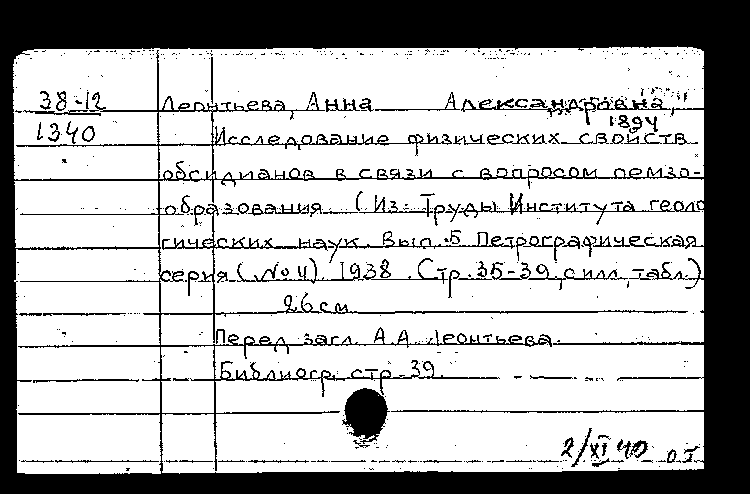 38-12 Леонтьева, Анна Александровна,
1894
1340 Исследование физических свойств
обсидианов в связи с вопросом пемзо-
образования. (Из: Труды Института геоло
гических наук. Вып. 5 Петрографическая
серия (№ 4) 1938. (Стр. 35-39, с илл., табл.)
26 см
Перед загл. А.А. Леонтьева.
Библиогр. стр. 39.
2/XI 40